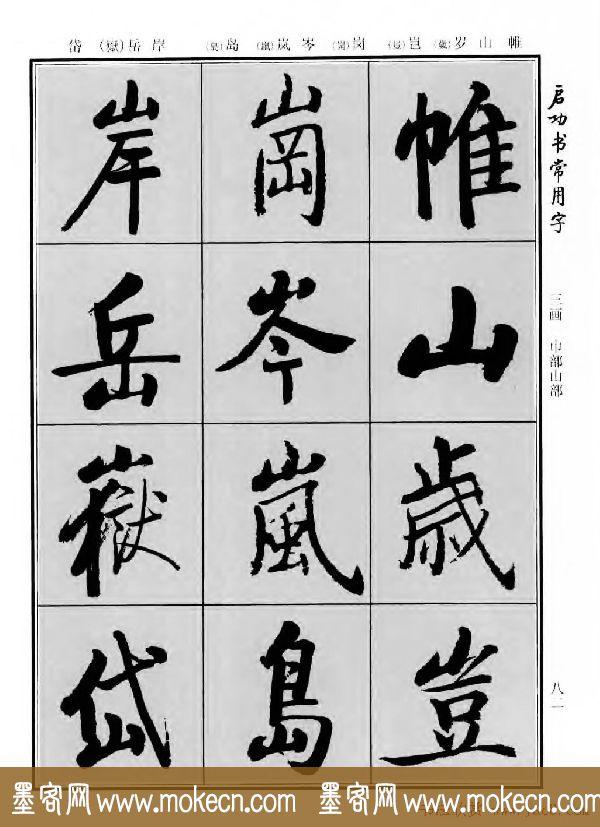 帷山岁(歲)岂(豈)岗(崗)岑岚(嵐)岛(島)岸岳(嶽)岱
启功书常用字
三画 巾部山部
八二
帷山歲豈
崗岑嵐島
岸岳嶽岱
墨客网 www.mokecn.com 墨客网 www.mokecn.com